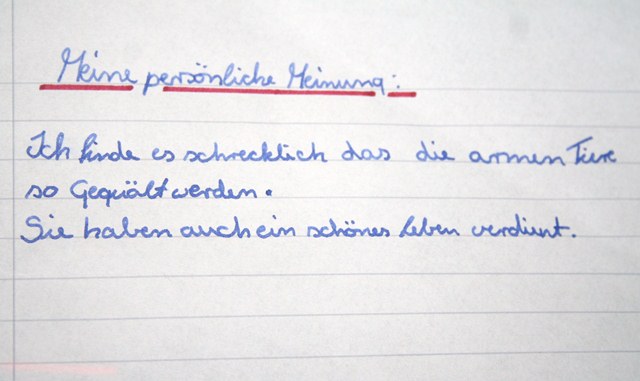 Meine persönliche Meinung:
Ich finde es schrecklich das die armen Tiere
so Gequält werden.
Sie haben auch ein schönes Leben verdient.